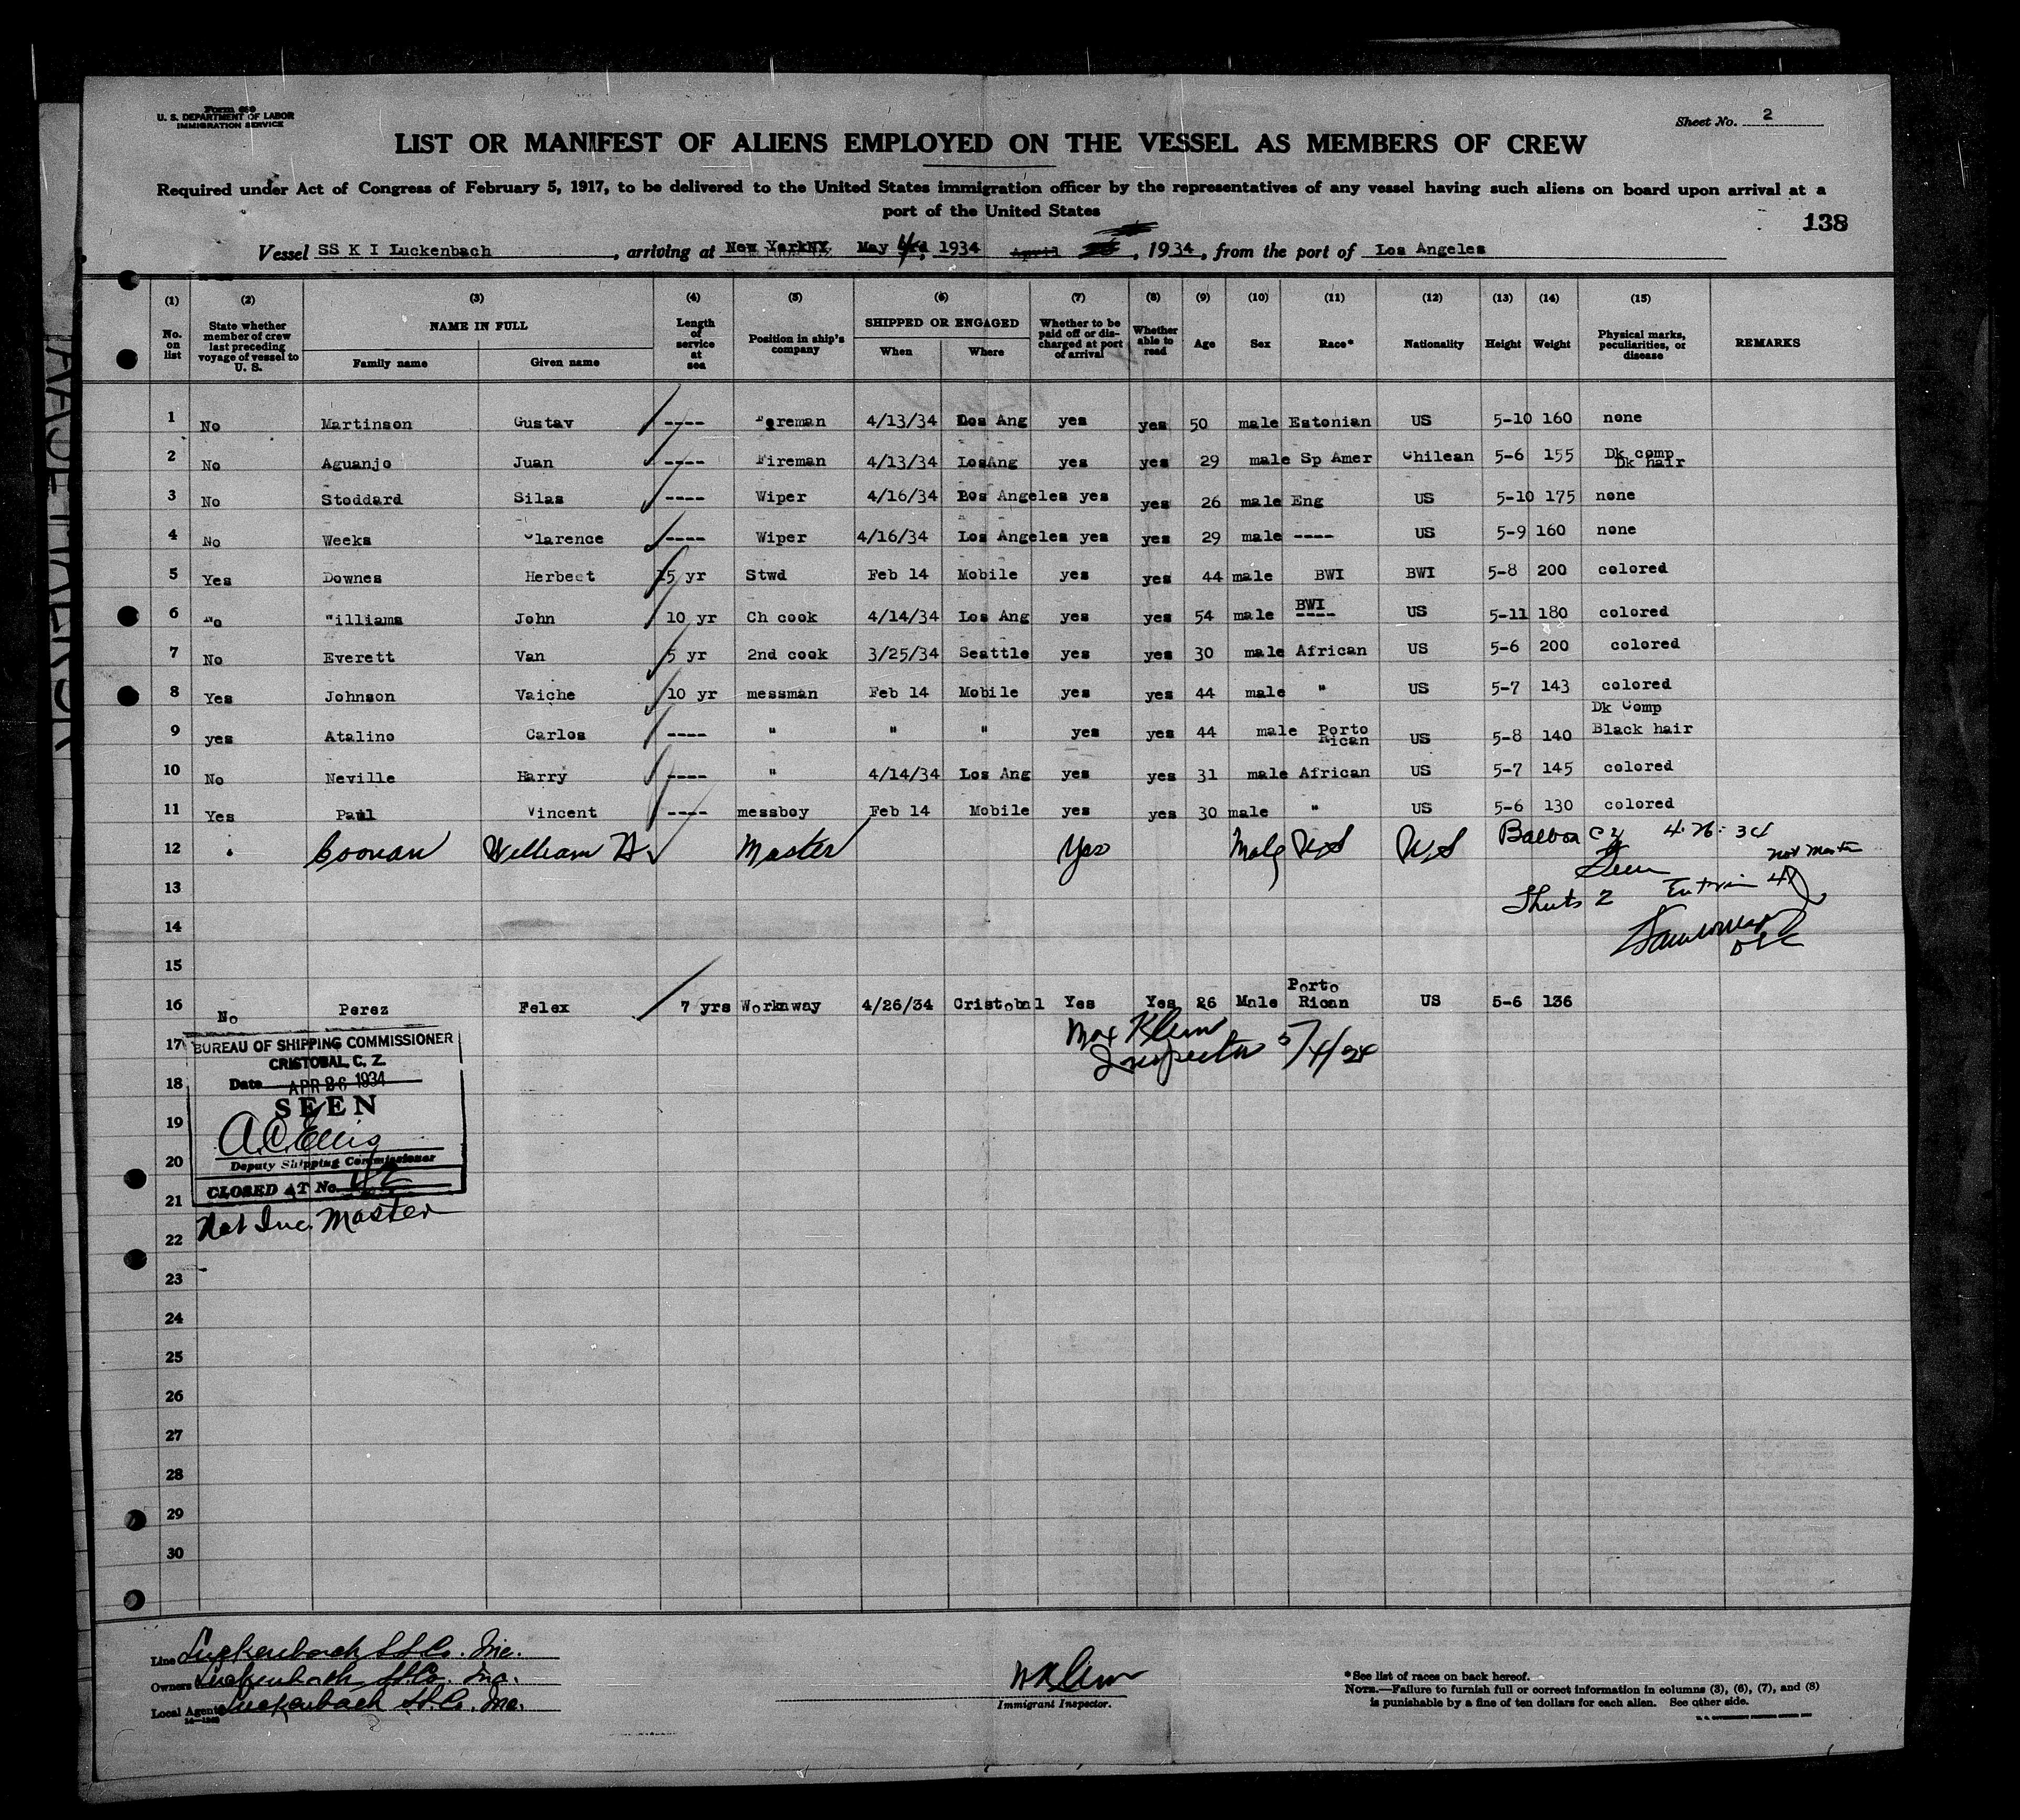 Form 680
U. S. DEPARTMENT OF LABOR
IMMIGRATION SERVICE
Sheet No. 2
LIST OR MANIFEST OF ALIENS EMPLOYED ON THE VESSEL AS MEMBERS OF CREW
Required under Act of Congress of February 5, 1917, to be delivered to the United States immigration officer by the representatives of any vessel having such aliens on board upon arrival at a
port of the United States
138
Vessel SS K I Luckenbach, arriving at New York NY May 4, 1934 April, 1934, from the port of Los Angeles
(1) (2) (3) (4) (5) (6) (7) (8) (9) (10) (11) (12) (13) (14) (15)
No. on list
State whether member of crew last preceding voyage of vessel to U. S.
NAME IN FULL
Family name
Given name
Length of service at sea
Position in ship's company
SHIPPED OR ENGAGED
When
Where
Whether to be paid off or discharged at port of arrival
Whether able to read
Age
Sex
Race*
Nationality
Height
Weight
Physical marks, peculiarities, or disease
REMARKS
1 No Martinson Gustav ---- Foreman 4/13/34 Los Ang yes yes 50 male Estonian US 5-10 160 none
2 No Aguanjo Juan ---- Fireman 4/13/34 LosAng yes yes 29 male Sp Amer Chilean 5-6 155 Dk comp Dk hair
3 No Stoddard Silas ---- Wiper 4/16/34 Los Angeles yes yes 26 male Eng US 5-10 175 none
4 No Weeks Clarence ---- Wiper 4/16/34 Los Angeles yes yes 29 male ---- US 5-9 160 none
5 Yes Downes Herbeet 15 yr Stwd Feb 14 Mobile yes yes 44 male BWI BWI 5-8 200 colored
6 No Williams John 10 yr Ch cook 4/14/34 Los Ang yes yes 54 male BWI ---- US 5-11 180 colored
7 No Everett Van 5 yr 2nd cook 3/25/34 Seattle yes yes 30 male African US 5-6 200 colored
8 Yes Johnson Vaiche 10 yr messman Feb 14 Mobile yes yes 44 male " US 5-7 143 colored
9 yes Atalino Carlos ---- " " " yes yes 44 male Porto Rican US 5-8 140 Dk Comp Black hair
10 No Neville Harry ---- " 4/14/34 Los Ang yes yes 31 male African US 5-7 145 colored
11 Yes Paul Vincent ---- messboy Feb 14 Mobile yes yes 30 male " US 5-6 130 colored
12 Coonan William H Master Yes Male US US Balboa CZ 4-26-34
Seen not Master
13 Sheets 2
14
15
16 No Perez Felex 7 yrs Workaway 4/26/34 Cristobal Yes Yes 26 Male Porto Rican US 5-6 136
Max Klein
Inspector 5/4/34
17
BUREAU OF SHIPPING COMMISSIONER
CRISTOBAL, C. Z.
18
Date APR 26 1934
SEEN
19
A.C. Ellis
20
Deputy Shipping Commissioner
CLOSED AT No.
21
Not Inc. Master
22
23
24
25
26
27
28
29
30
Line Luckenbach S.S. Co. Inc.
Owners Luckenbach S.S. Co. Inc.
Local Agents Luckenbach S.S. Co. Inc.
M Klein
Immigrant Inspector.
*See list of races on back hereof.
NOTE.—Failure to furnish full or correct information in columns (3), (6), (7), and (8)
is punishable by a fine of ten dollars for each alien. See other side.